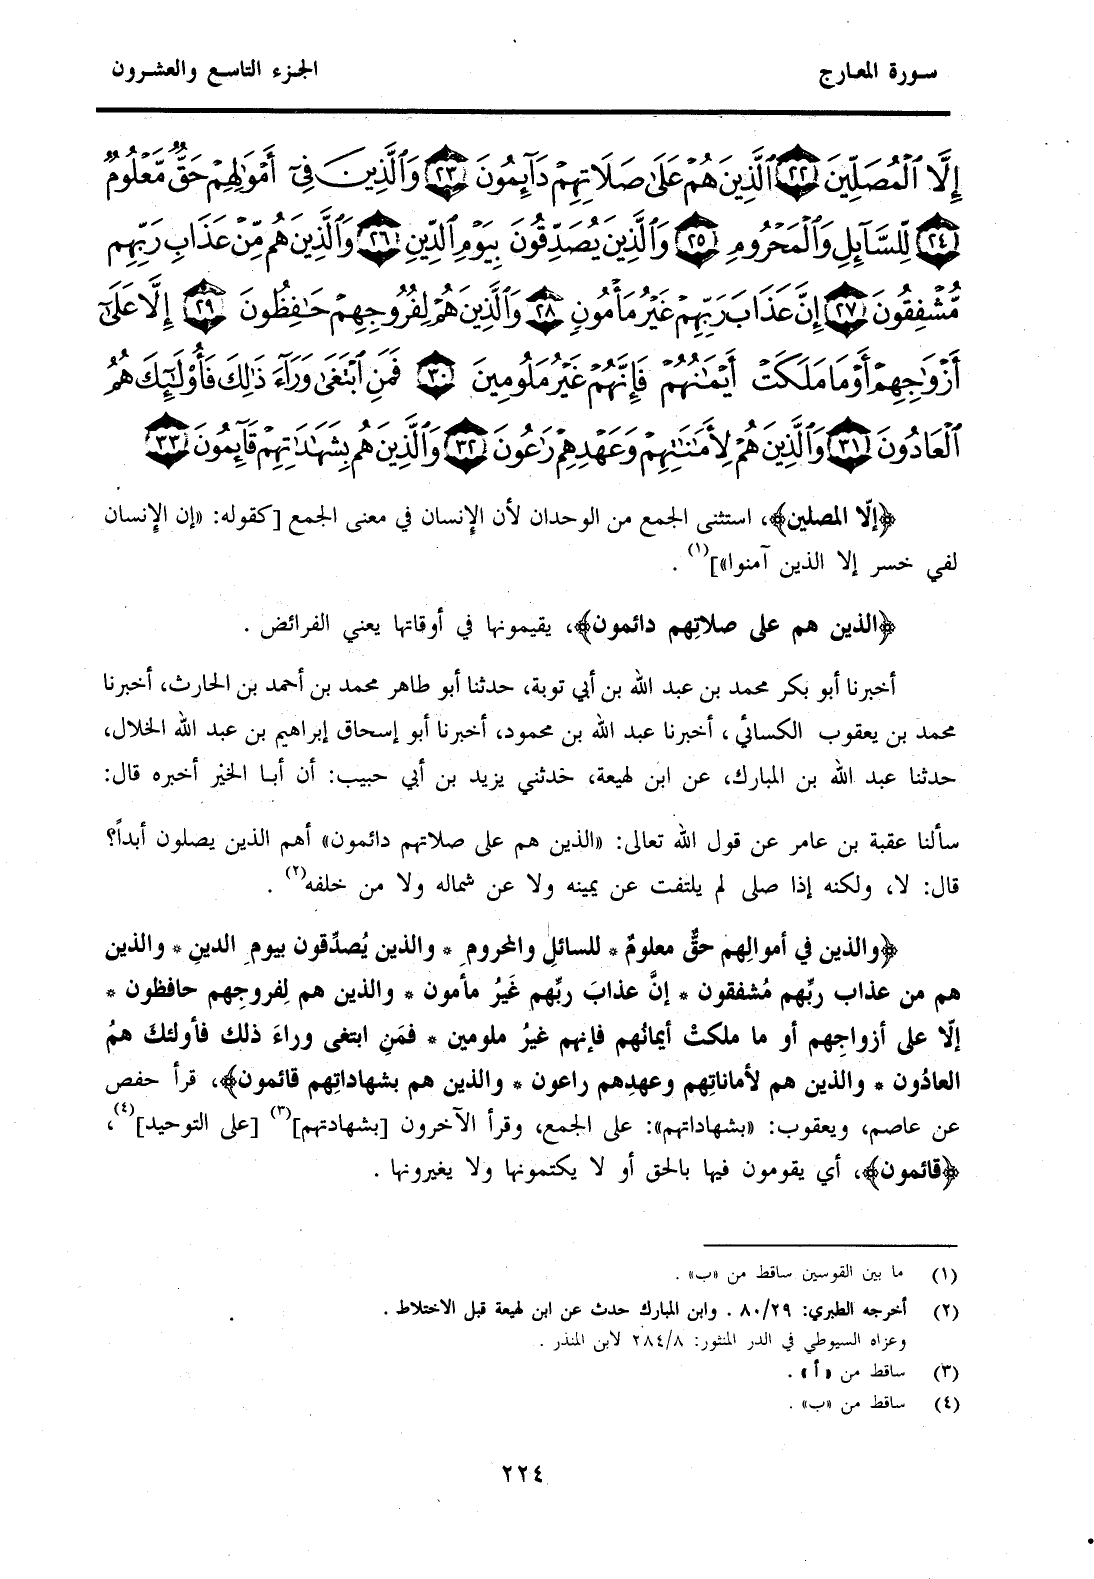 سورة المعارج
الجزء التاسع والعشرون
إِلَّا ٱلْمُصَلِّينَ ٢٢ ٱلَّذِينَ هُمْ عَلَىٰ صَلَاتِهِمْ دَآئِمُونَ ٢٣ وَٱلَّذِينَ فِىٓ أَمْوَٰلِهِمْ حَقٌّ مَّعْلُومٌ
٢٤ لِّلسَّآئِلِ وَٱلْمَحْرُومِ ٢٥ وَٱلَّذِينَ يُصَدِّقُونَ بِيَوْمِ ٱلدِّينِ ٢٦ وَٱلَّذِينَ هُم مِّنْ عَذَابِ رَبِّهِم
مُّشْفِقُونَ ٢٧ إِنَّ عَذَابَ رَبِّهِمْ غَيْرُ مَأْمُونٍ ٢٨ وَٱلَّذِينَ هُمْ لِفُرُوجِهِمْ حَٰفِظُونَ ٢٩ إِلَّا عَلَىٰٓ
أَزْوَٰجِهِمْ أَوْ مَا مَلَكَتْ أَيْمَٰنُهُمْ فَإِنَّهُمْ غَيْرُ مَلُومِينَ ٣٠ فَمَنِ ٱبْتَغَىٰ وَرَآءَ ذَٰلِكَ فَأُو۟لَٰٓئِكَ هُمُ
ٱلْعَادُونَ ٣١ وَٱلَّذِينَ هُمْ لِأَمَٰنَٰتِهِمْ وَعَهْدِهِمْ رَٰعُونَ ٣٢ وَٱلَّذِينَ هُم بِشَهَٰدَٰتِهِمْ قَآئِمُونَ ٣٣
﴿إلّا المصلين﴾، استثنى الجمع من الوحدان لأن الإنسان في معنى الجمع [كقوله: «إن الإنسان
لفي خسر إلا الذين آمنوا»](١) .
﴿الذين هم على صلاتِهم دائمون﴾، يقيمونها في أوقاتها يعني الفرائض .
أخبرنا أبو بكر محمد بن عبد الله بن أبي توبة، حدثنا أبو طاهر محمد بن أحمد بن الحارث، أخبرنا
محمد بن يعقوب الكسائي ، أخبرنا عبد الله بن محمود، أخبرنا أبو إسحاق إبراهيم بن عبد الله الخلال،
حدثنا عبد الله بن المبارك، عن ابن لهيعة، حدثني يزيد بن أبي حبيب: أن أبا الخيْر أخبره قال:
سألنا عقبة بن عامر عن قول الله تعالى: «الذين هم على صلاتهم دائمون» أهم الذين يصلون أبداً؟
قال: لا، ولكنه إذا صلى لم يلتفت عن يمينه ولا عن شماله ولا من خلفه(٢) .
﴿والذين في أموالِهم حقٌّ معلومٌ * للسائلِ والمحرومِ * والذين يُصدِّقون بيوم الدين * والذين
هم من عذاب ربِّهم مُشفقون * إنَّ عذابَ ربِّهم غَيرُ مأمون * والذين هم لِفروجِهم حافظون *
إلّا على أزواجِهم أو ما ملكتْ أيمانُهم فإنهم غيرُ ملومين * فمَنِ ابتغى وراءَ ذلك فأولئكَ همُ
العادُون * والذين هم لأماناتِهم وعهدِهم راعون * والذين هم بشهاداتِهم قائمون﴾، قرأ حفص
عن عاصم، ويعقوب: «بشهاداتهم»: على الجمع، وقرأ الآخرون [بشهادتهم](٣) [على التوحيد](٤)،
﴿قائمون﴾، أي يقومون فيها بالحق أو لا يكتمونها ولا يغيرونها .
(١) ما بين القوسين ساقط من «ب» .
(٢) أخرجه الطبري: ٨٠/٢٩ . وابن المبارك حدث عن ابن لهيعة قبل الاختلاط .
وعزاه السيوطي في الدر المنثور: ٢٨٤/٨ لابن المنذر .
(٣) ساقط من «أ» .
(٤) ساقط من «ب» .
٢٢٤